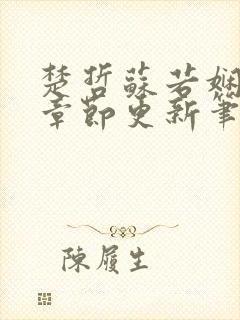 楚哲蘇若嫻
章節更新筆
陳履生